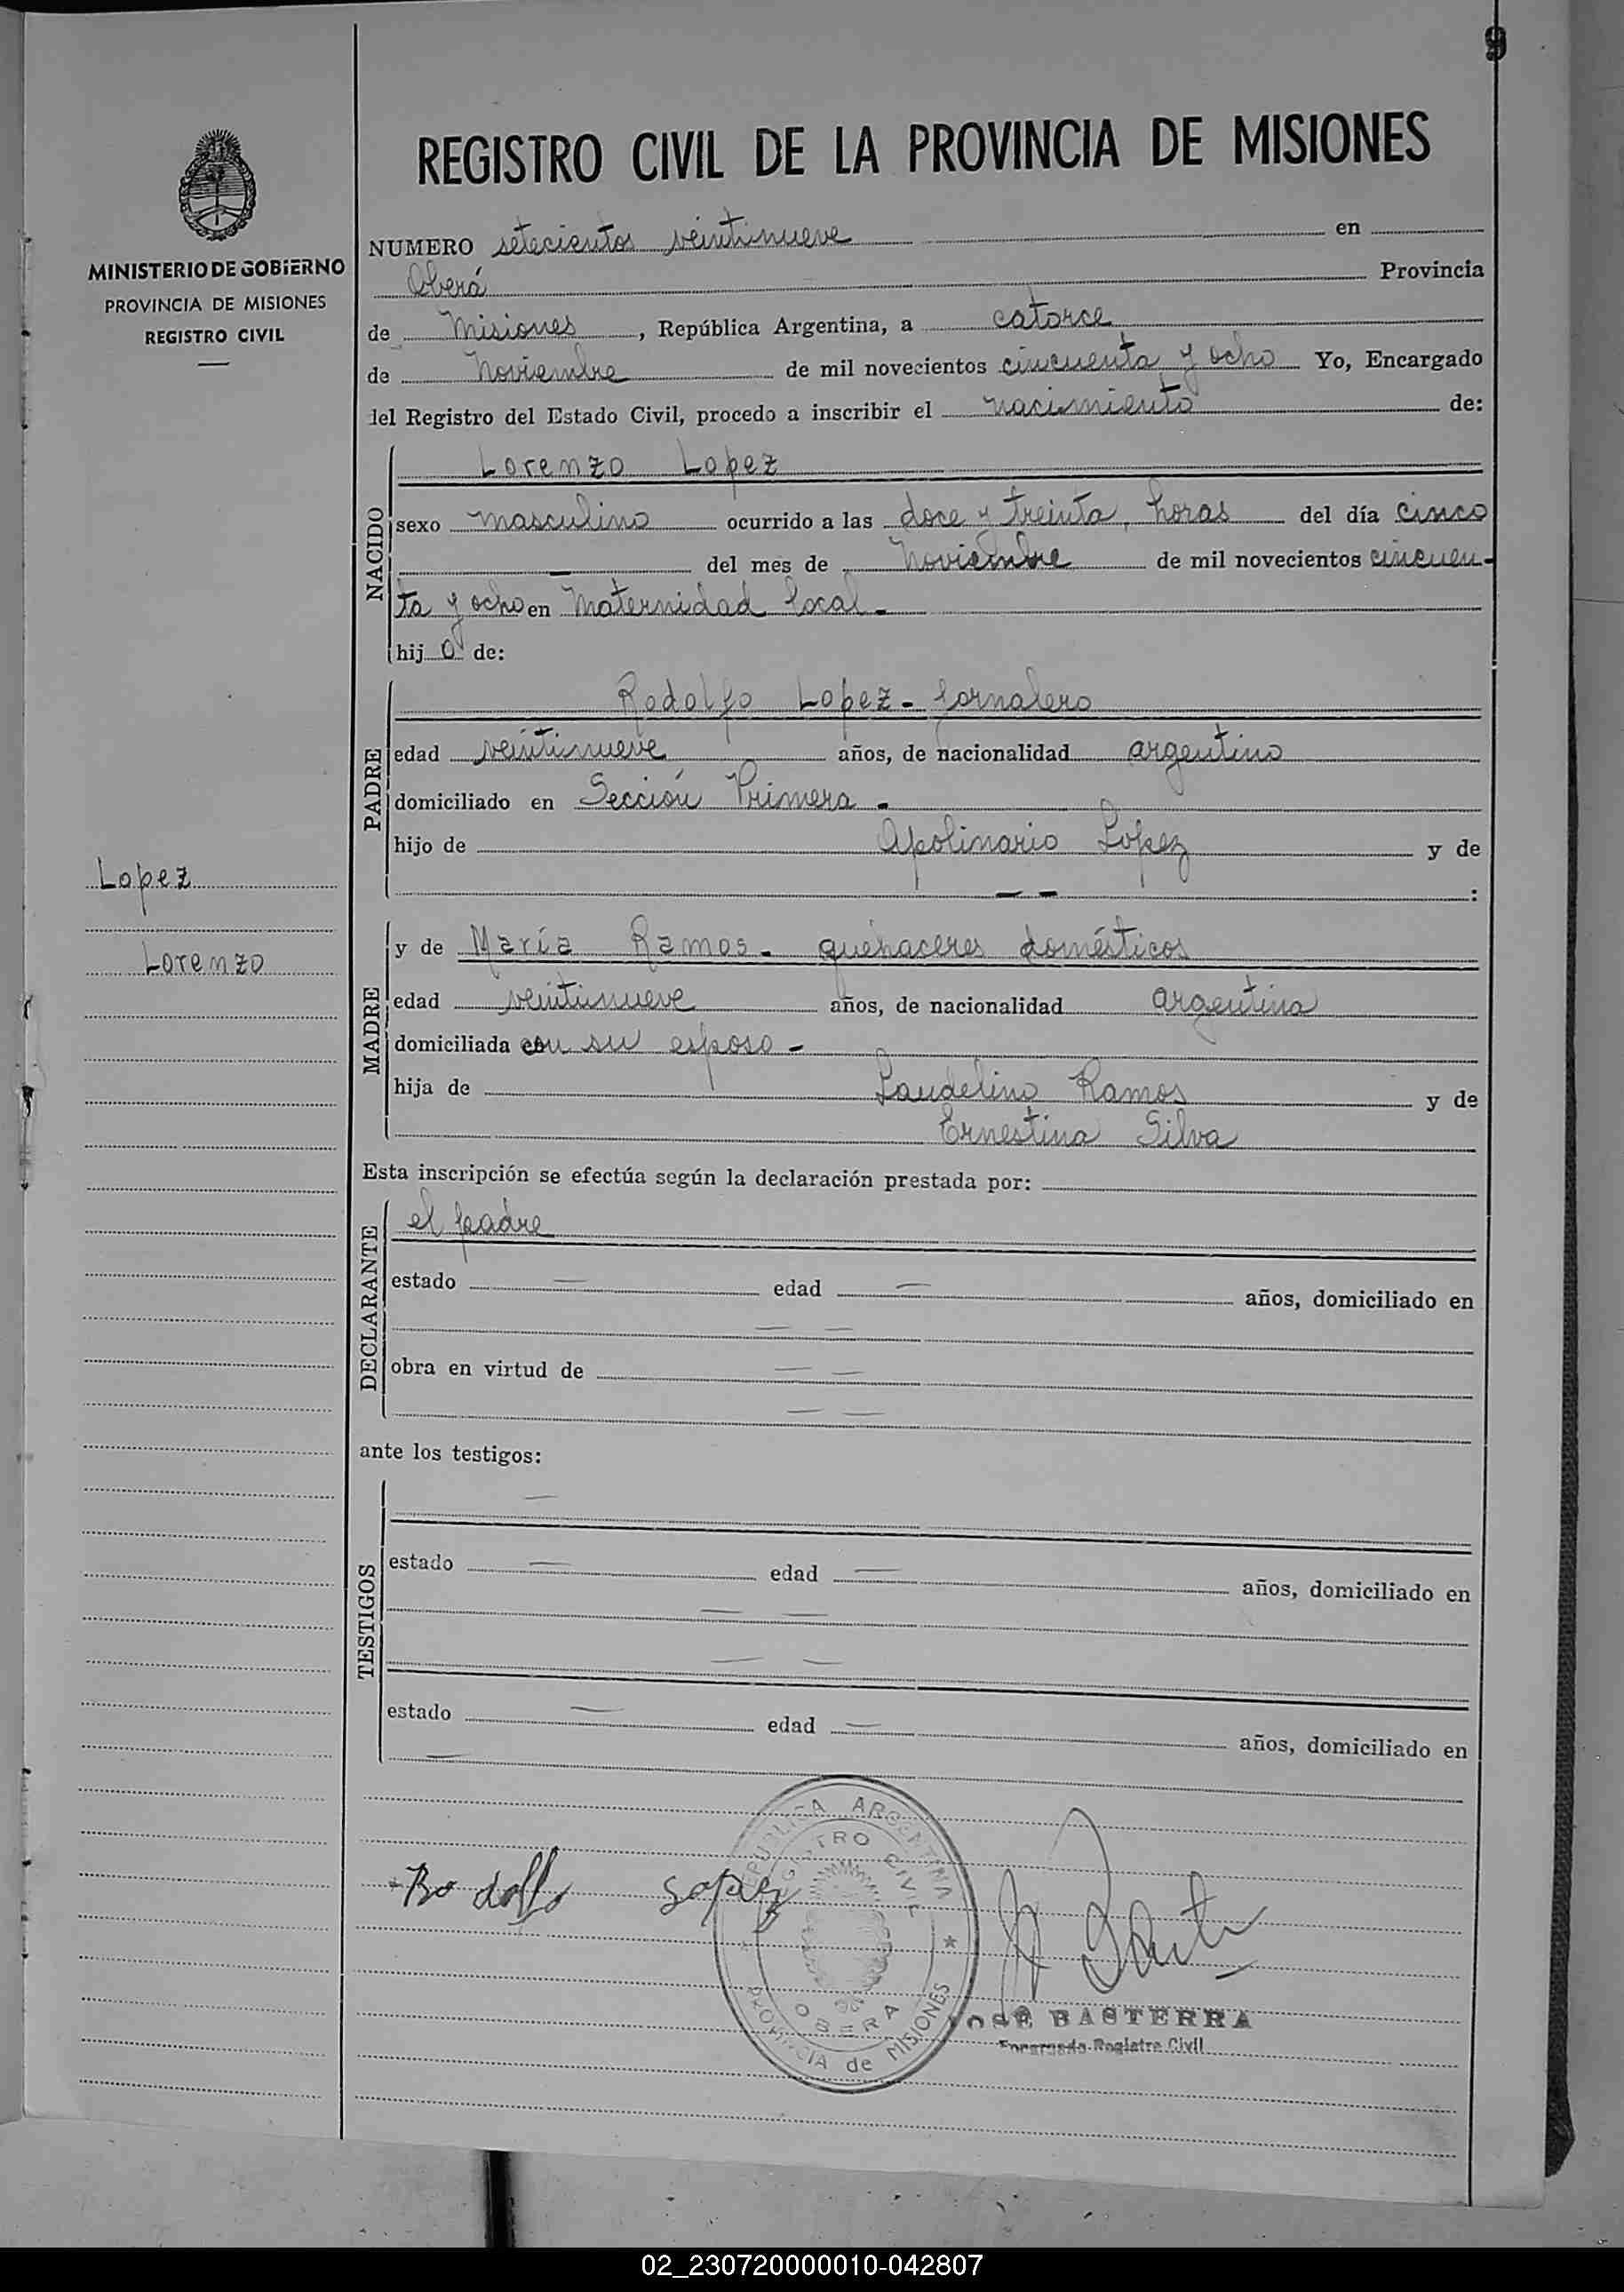 9
REGISTRO CIVIL DE LA PROVINCIA DE MISIONES
MINISTERIO DE GOBIERNO
PROVINCIA DE MISIONES
REGISTRO CIVIL
NUMERO setecientos veintinueve en
Oberá Provincia
de Misiones, República Argentina, a catorce
de Noviembre de mil novecientos cincuenta y ocho Yo, Encargado
del Registro del Estado Civil, procedo a inscribir el nacimiento de:
NACIDO
Lorenzo Lopez
sexo masculino ocurrido a las doce y treinta, horas del día cinco
— del mes de Noviembre de mil novecientos cincuen-
ta y ocho en Maternidad local -
hij o de:
PADRE
Rodolfo Lopez - jornalero
edad veintinueve años, de nacionalidad argentino
domiciliado en Sección Primera -
hijo de Apolinario Lopez y de
— — :
Lopez
Lorenzo
MADRE
y de María Ramos - quehaceres domésticos
edad veintinueve años, de nacionalidad argentina
domiciliada con su esposo -
hija de Laudelino Ramos y de
Ernestina Silva
Esta inscripción se efectúa según la declaración prestada por:
DECLARANTE
el padre
estado — edad — años, domiciliado en
— —
obra en virtud de — —
— —
ante los testigos:
TESTIGOS
—
estado — edad — años, domiciliado en
— —
— —
estado — edad — años, domiciliado en
—
Rodolfo Lopez
REPUBLICA ARGENTINA
REGISTRO CIVIL
OBERA
PROVINCIA de MISIONES
JOSÉ BASTERRA
Encargado Registro Civil
02_230720000010-042807